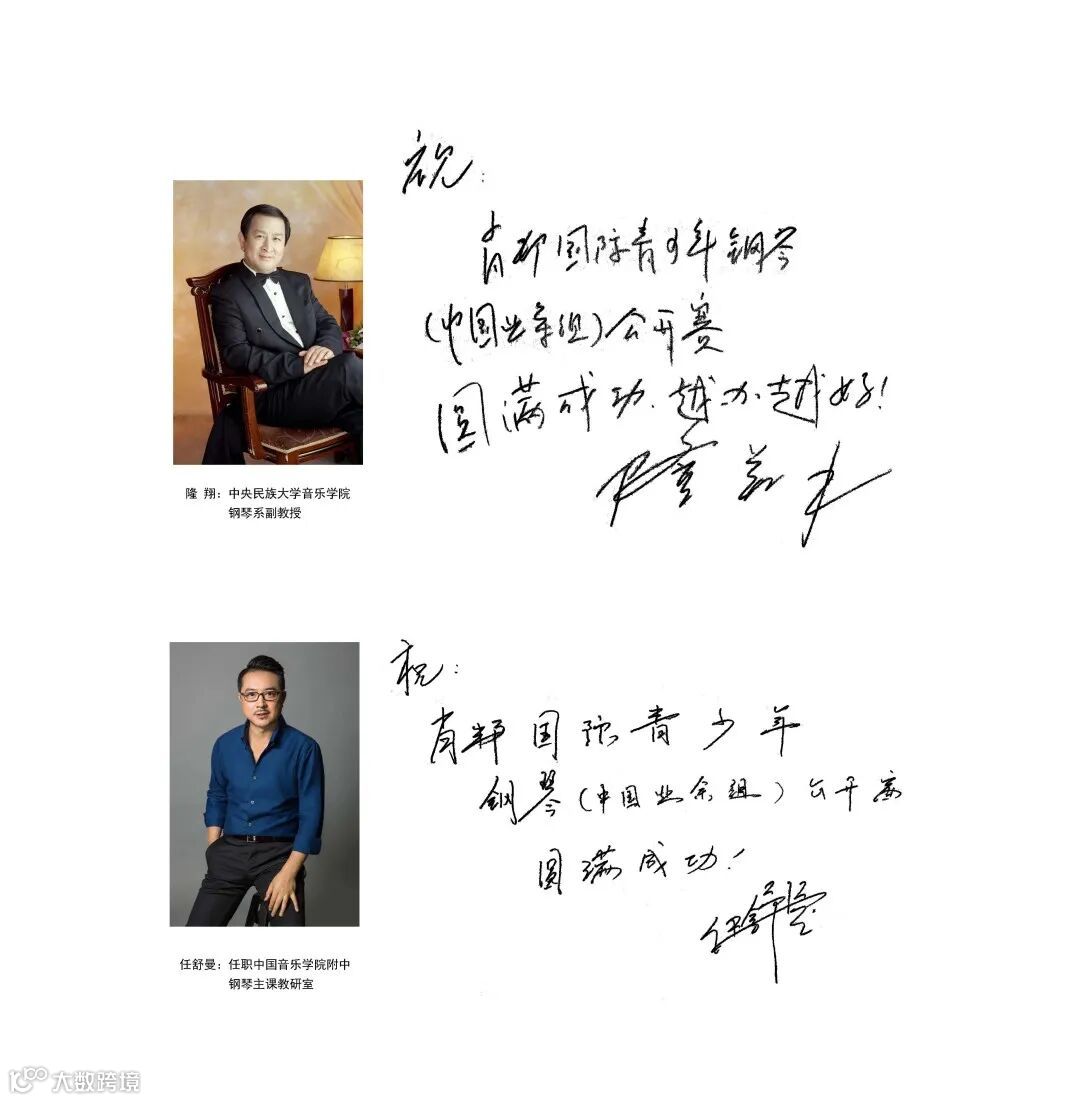 祝：
肖邦国际青少年钢琴
（中国业余组）公开赛
圆满成功.越办越好！
隆 翔：中央民族大学音乐学院
钢琴系副教授
祝：
肖邦国际青少年
钢琴（中国业余组）公开赛
圆满成功！
任舒曼
任舒曼：任职中国音乐学院附中
钢琴主课教研室
大数跨境